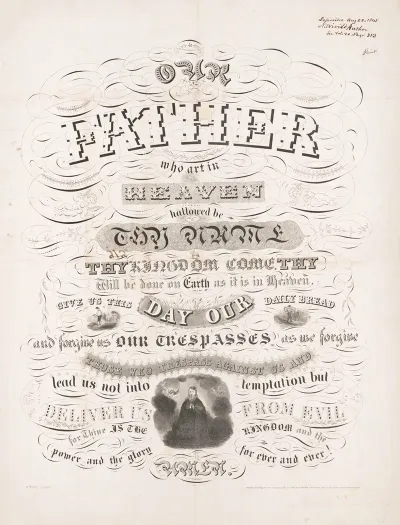 OUR
FATHER
who art in
HEAVEN
hallowed be
THY NAME
THY KINGDOM COME, THY
Will be done on Earth as it is in Heaven.
GIVE US THIS DAY OUR DAILY BREAD
and forgive us OUR TRESPASSES as we forgive
THOSE WHO TRESPASS AGAINST US AND
lead us not into temptation but
DELIVER US FROM EVIL
for Thine IS THE KINGDOM and the
power and the glory for ever and ever!
AMEN.